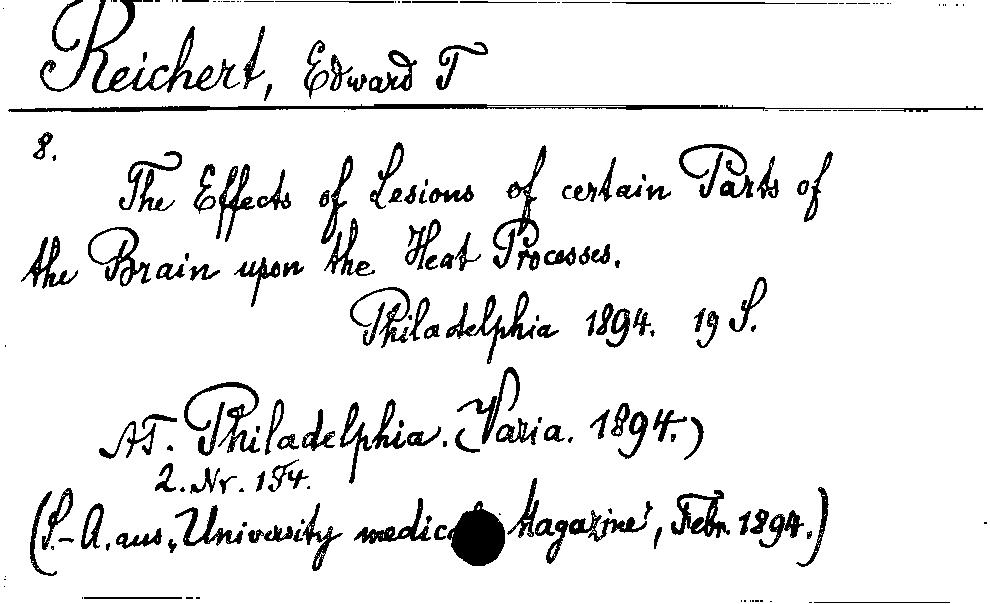 Reichert, Edward T
8.
The Effects of Lesions of certain Parts of
the Brain upon the Heat Processes.
Philadelphia 1894. 19 S.
AT. Philadelphia. (Varia. 1894.)
2. Nr. 154.
(S.-A. aus „University medical Magazine", Febr. 1894.)